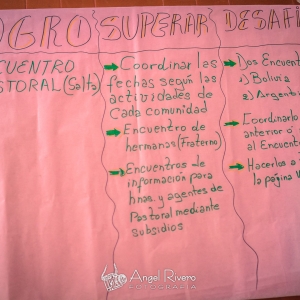 OGRO SUPERAR DESAFI
CUENTRO
STORAL (Salta)
Coordinar les
fechas según las
actividades de
Cada comunidad
Encuentro de
hermanas (Fraterno)
Encuentros de
información para
hnas. y agentes de
Pastoral mediante
subsidios
Dos Encuent
1) Bolivia
2) Argentin
Coordinarlo
anterior ó
al Encuentr
Hacerlos a
la página
Angel Rivero
FOTOGRAFÍA